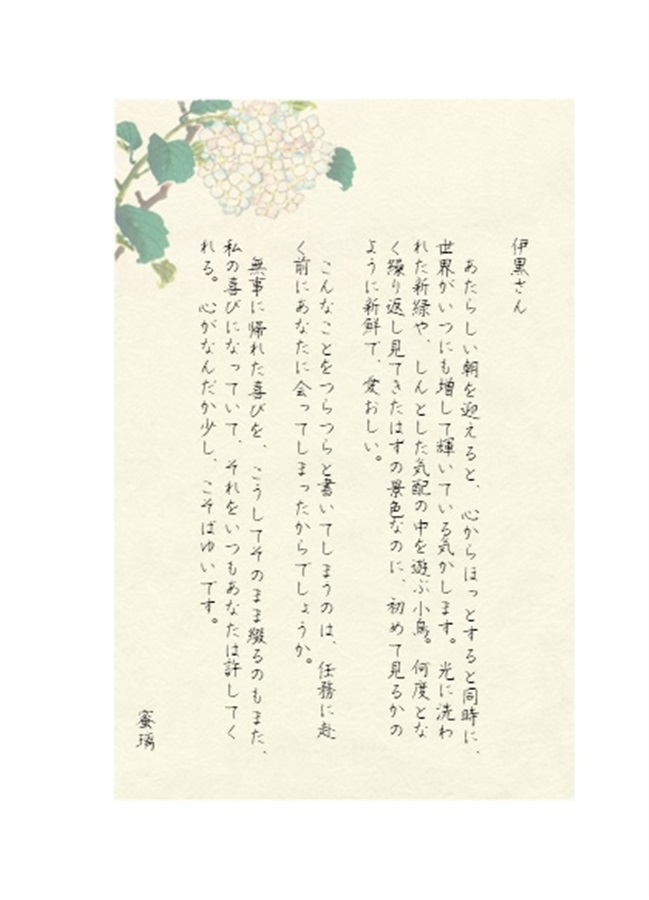 伊黒さん
あたらしい朝を迎えると、心からほっとすると同時に、
世界がいつにも増して輝いている気がします。光に洗わ
れた新緑や、しんとした気配の中を遊ぶ小鳥。何度とな
く繰り返し見てきたはずの景色なのに、初めて見るかの
ように新鮮で、愛おしい。
こんなことをつらつらと書いてしまうのは、任務に赴
く前にあなたに会ってしまったからでしょうか。
無事に帰れた喜びを、こうしてそのまま綴るのもまた、
私の喜びになっていて、それをいつもあなたは許してく
れる。心がなんだか少し、こそばゆいです。
蜜璃